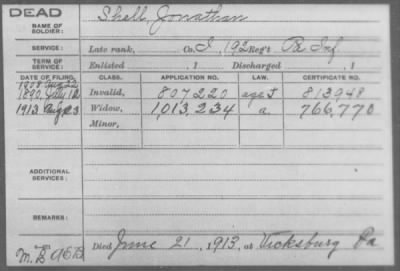 DEAD
NAME OF SOLDIER: Shell, Jonathan
SERVICE: Late rank, Co. I, 192 Reg't Pa Inf.
TERM OF SERVICE: Enlisted , 1 Discharged , 1
DATE OF FILING. CLASS. APPLICATION NO. LAW. CERTIFICATE NO.
1908 Aug 22
1890 July 12 Invalid, 807220 813948
1913 Aug 23 Widow, 1,013,234 a. 766,770
Minor,
ADDITIONAL SERVICES:
REMARKS:
Died June 21, 1913, at Vicksburg Pa